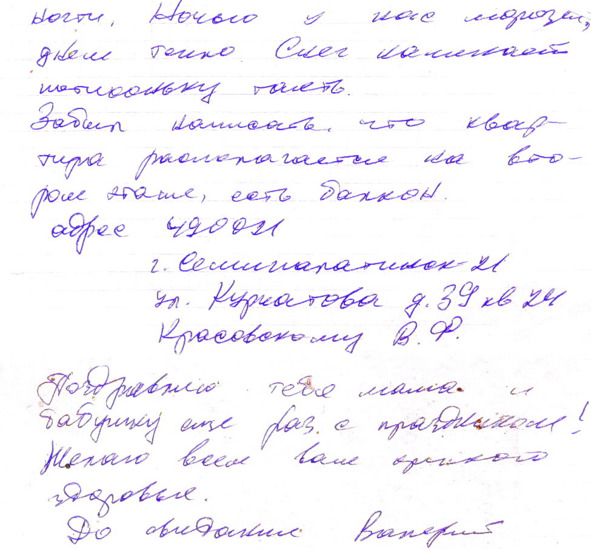 ногти. Ночью у нас морозы,
днем тепло. Снег начинает
потихоньку таять.
Забыл написать, что квар-
тира располагается на вто-
ром этаже, есть балкон.
адрес 490021
г. Семипалатинск-21
ул. Курчатова д. 39 кв 24
Красовскому В. Ф.
Поздравляю тебя мама и
бабушку еще раз с праздником!
Желаю всем вам крепкого
здоровья.
До свидание Валерий